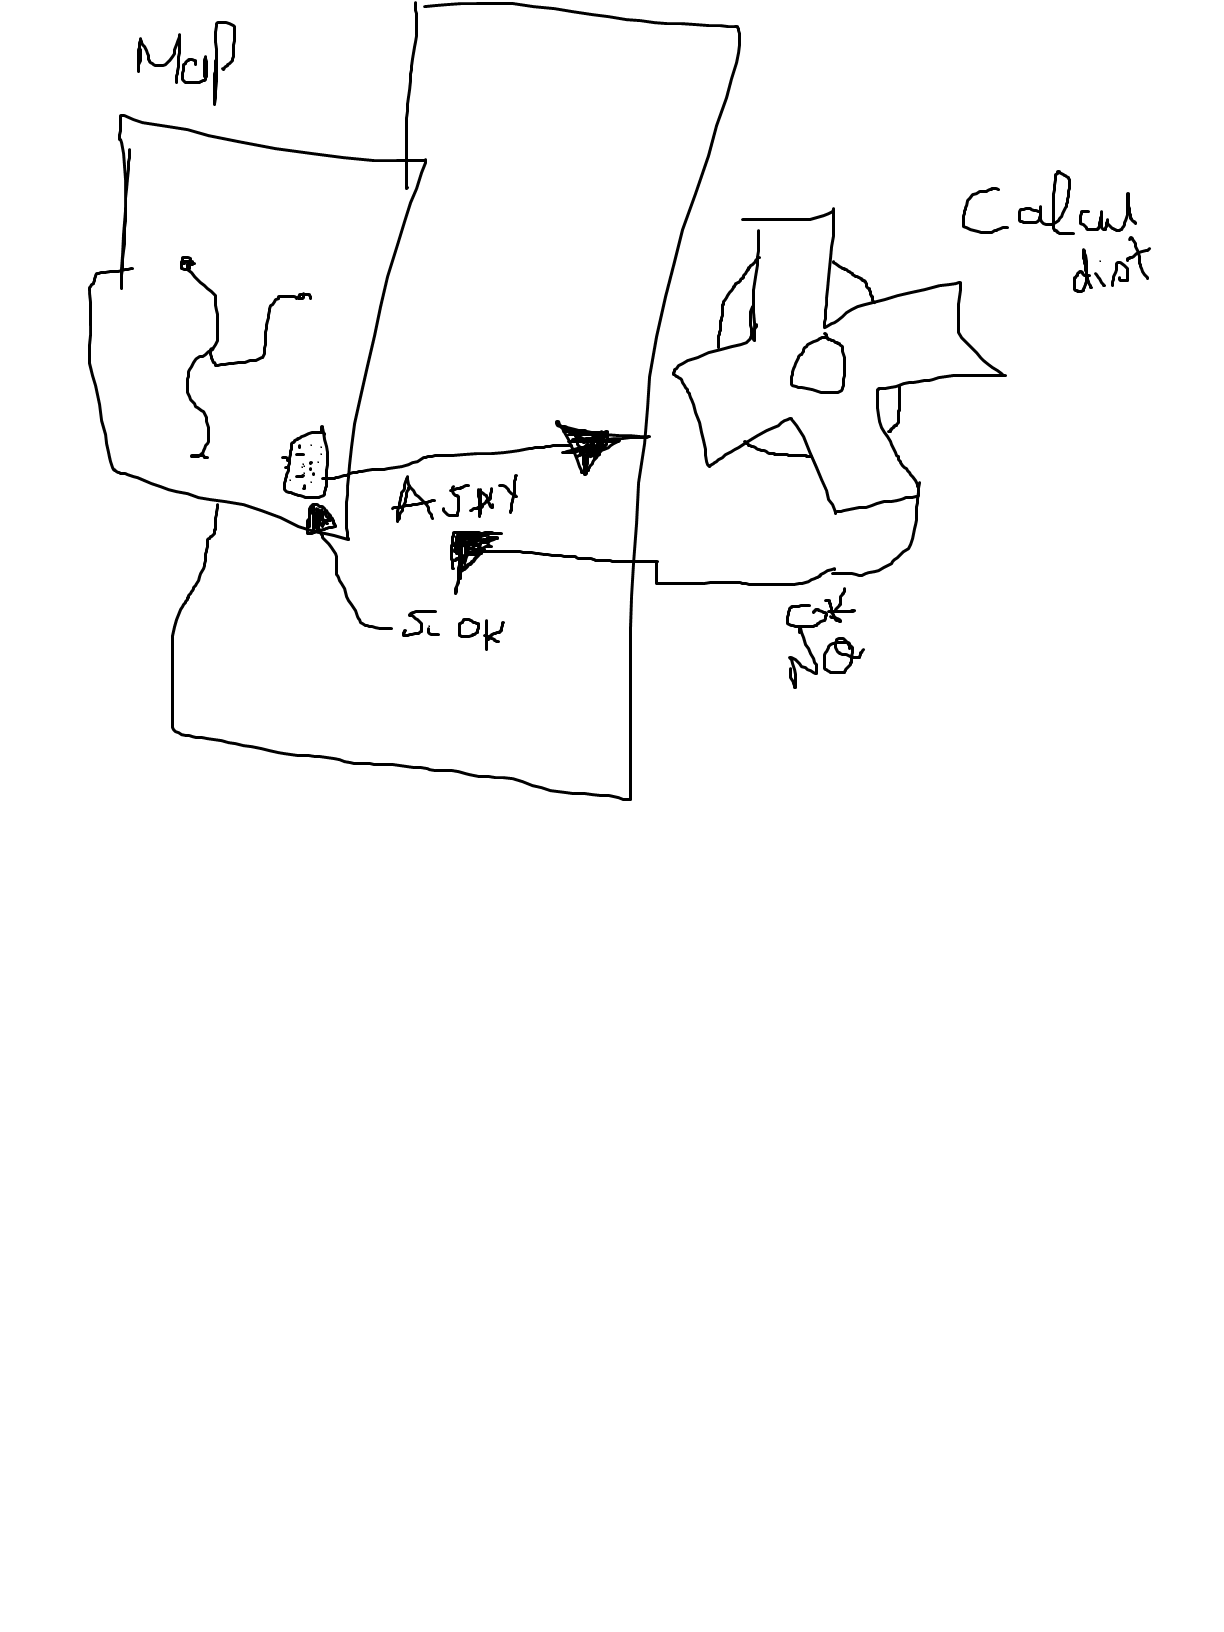 Map
Calcul
dist
ASNY
Si OK
OK
NO